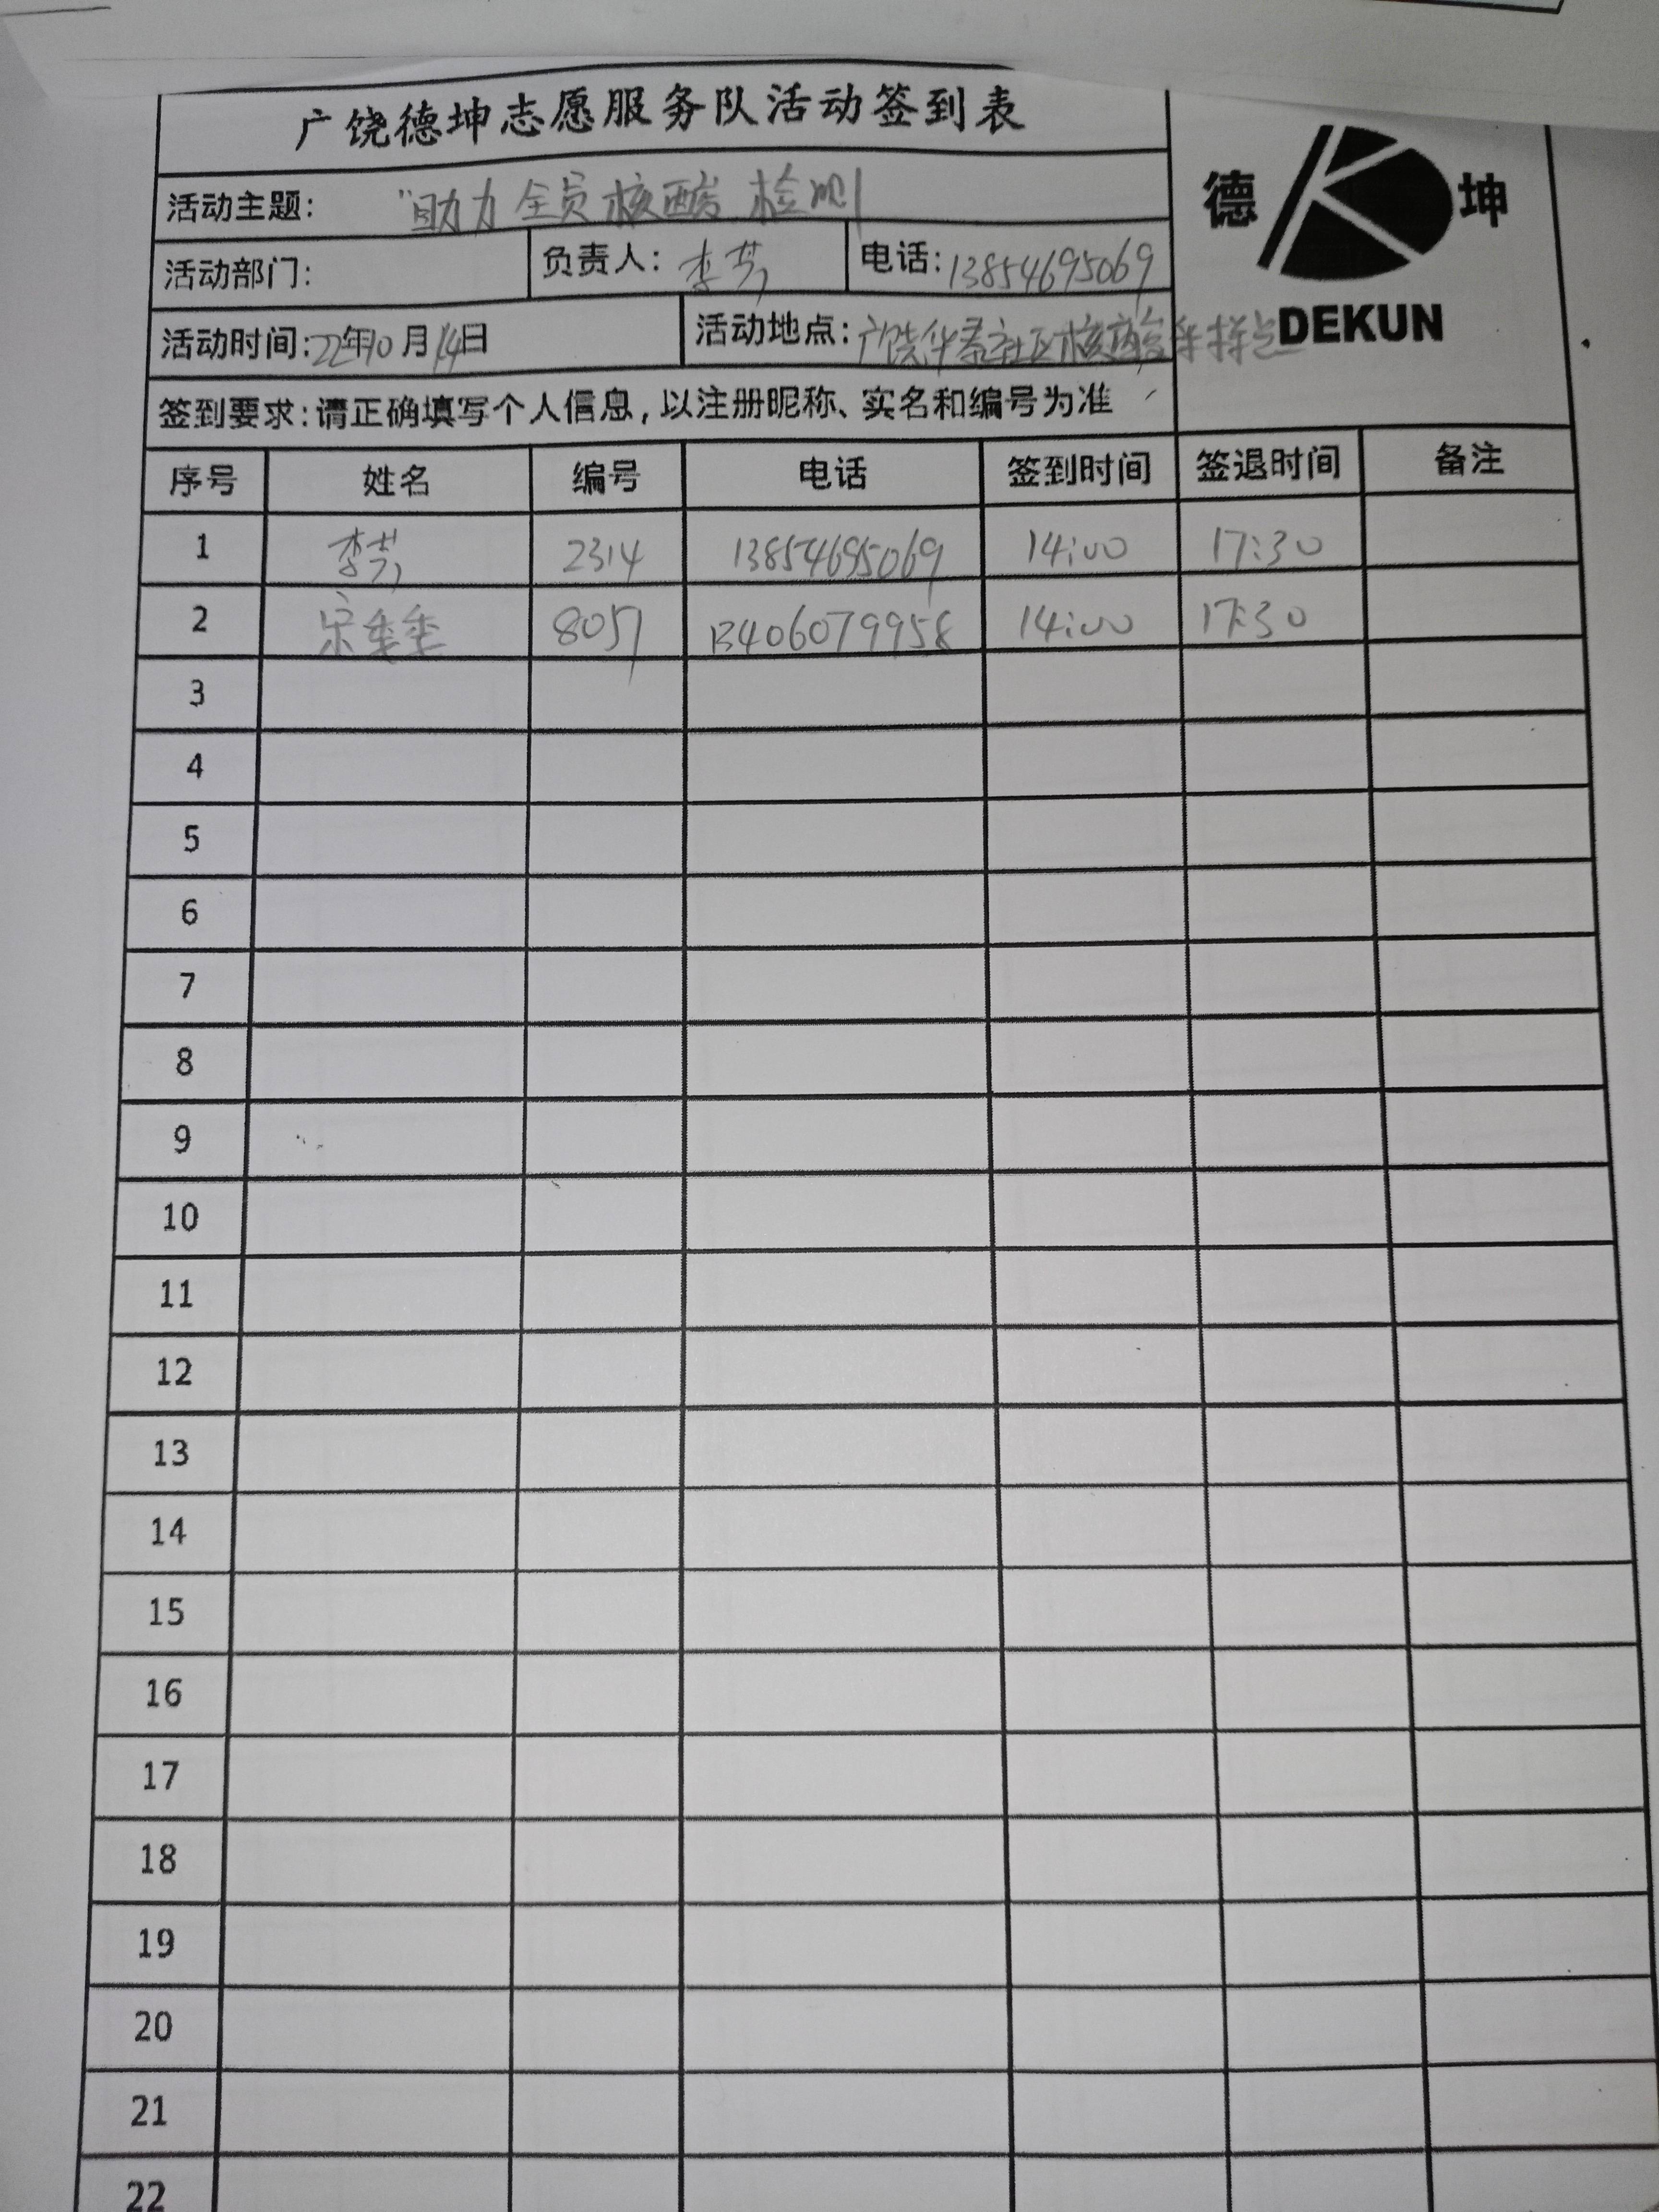 广饶德坤志愿服务队活动签到表
德 坤
DEKUN
活动主题: "助力全员核酸检测
活动部门: 负责人: 李芳 电话: 13854695069
活动时间: 22年10月14日 活动地点: 广饶华泰社区核酸采样点
签到要求:请正确填写个人信息,以注册昵称、实名和编号为准
序号 姓名 编号 电话 签到时间 签退时间 备注
1 李芳 2314 13854695069 14:00 17:30
2 宋 8051 13406079958 14:00 17:30
3
4
5
6
7
8
9
10
11
12
13
14
15
16
17
18
19
20
21
22